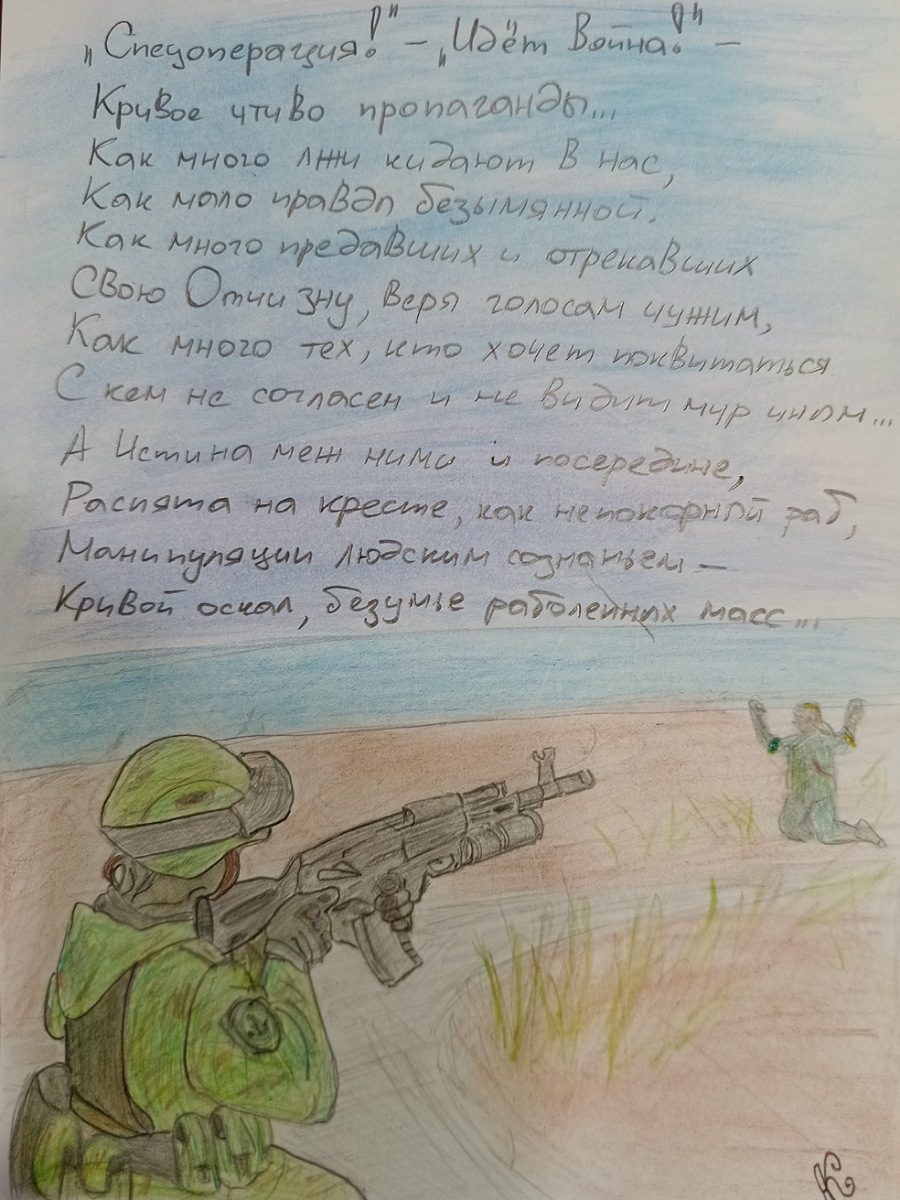 „Спецоперация!" – „Идёт Война!" –
Кривое чтиво пропаганды...
Как много лжи кидают в нас,
Как мало правды безымянной.
Как много предавших и отрекавших
Свою Отчизну, веря голосам чужим,
Как много тех, кто хочет поквитаться
С кем не согласен и не видит мир иным...
А Истина меж ними и посередине,
Распята на кресте, как непокорный раб,
Манипуляции людским сознаньем –
Кривой оскал, безумье раболепных масс...